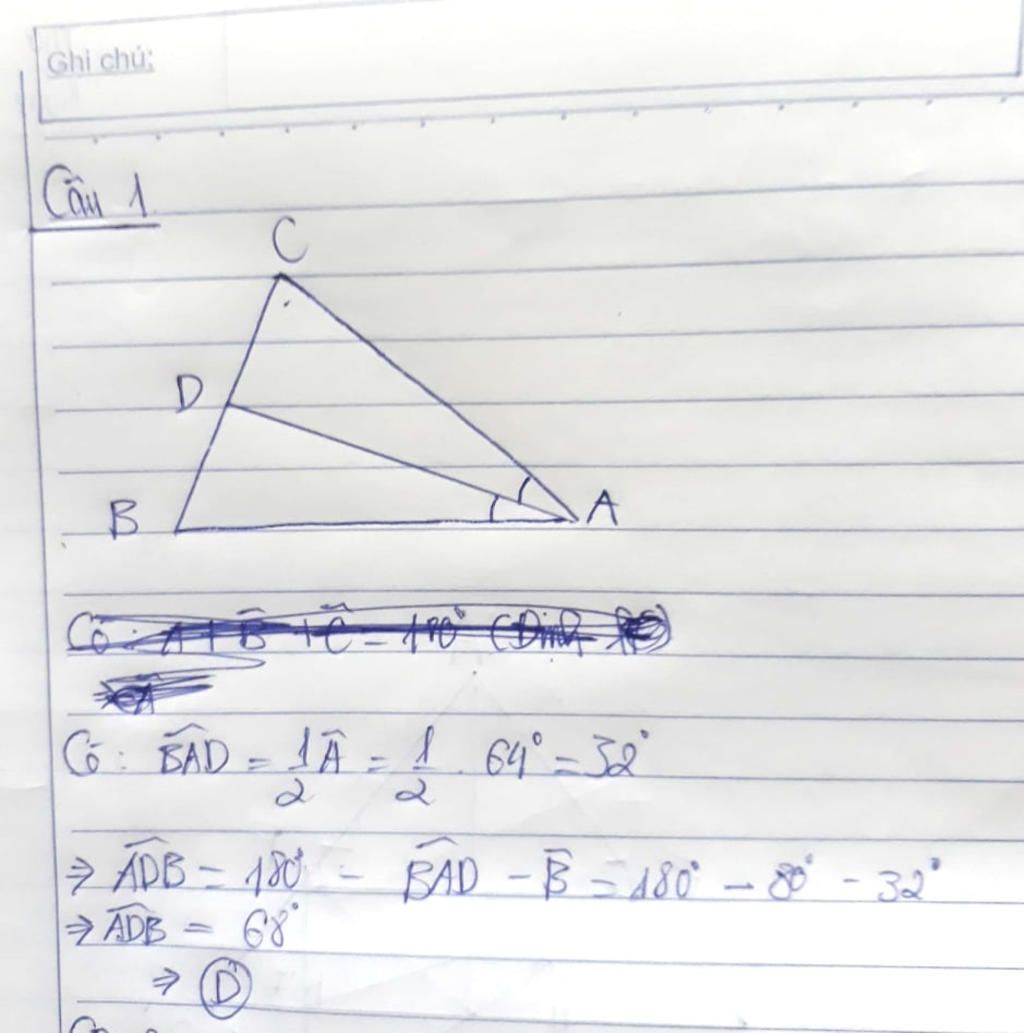 Ghi chú:
Câu 1
C
D
B
A
Có: A + B + C = 180° (Định
Có: BAD = 1/2 A = 1/2 . 64° = 32°
=> ADB = 180° - BAD - B = 180° - 80° - 32°
=> ADB = 68°
=> D